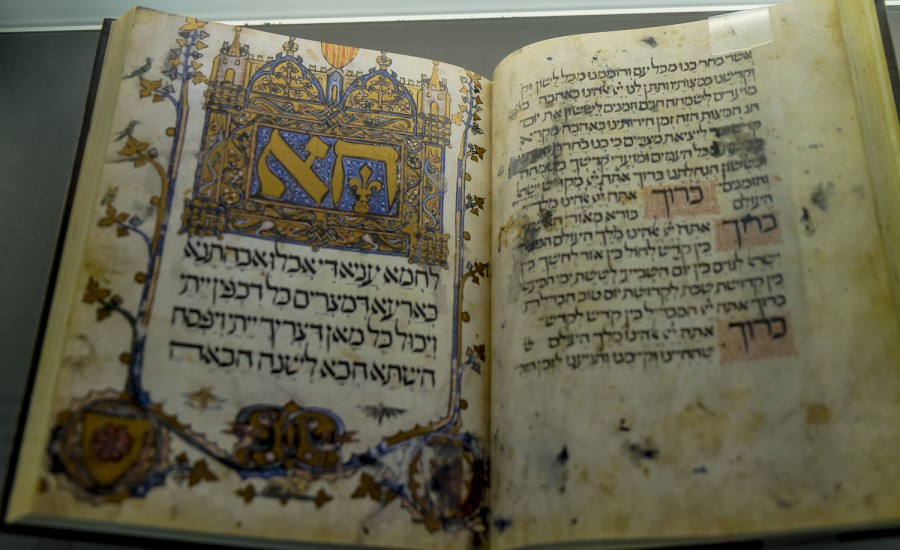 אשר בחר בנו מכל עם ורוממנו מכל לשון וק
וקדשנו במצותיו ותתן לנו יי אלהינו באהבה
מועדים לשמחה חגים וזמנים לששון את יום
חג המצות הזה זמן חירותינו באהבה מקרא
ליציאת מצרים כי בנו בחרת
מכל העמים ומועדי קדשך
ובששון הנחלתנו ברוך אתה יי מקדש ישר
והזמנים ברוך אתה יי אלהינו מלך
העולם בורא מאורי
ברוך אתה יי אלהינו מלך העולם
בין קדש לחול בין אור לחשך בין
ישראל לגוים בין יום השביעי לששת ימי
בין קדושת שבת לקדושת יום טוב הבדלת
ברוך אתה יי המבדיל בין קדש לקדש
ברוך אתה יי אלהינו מלך העולם ש
שהחיינו וקיימנו והגיענו לזמן הזה
הא
לחמא עניא די אכלו אבהתנא
בארעא דמצרים כל דכפין ייתי
ויכול כל מאן דצריך ייתי ויפסח
השתא הכא לשנה הבאה